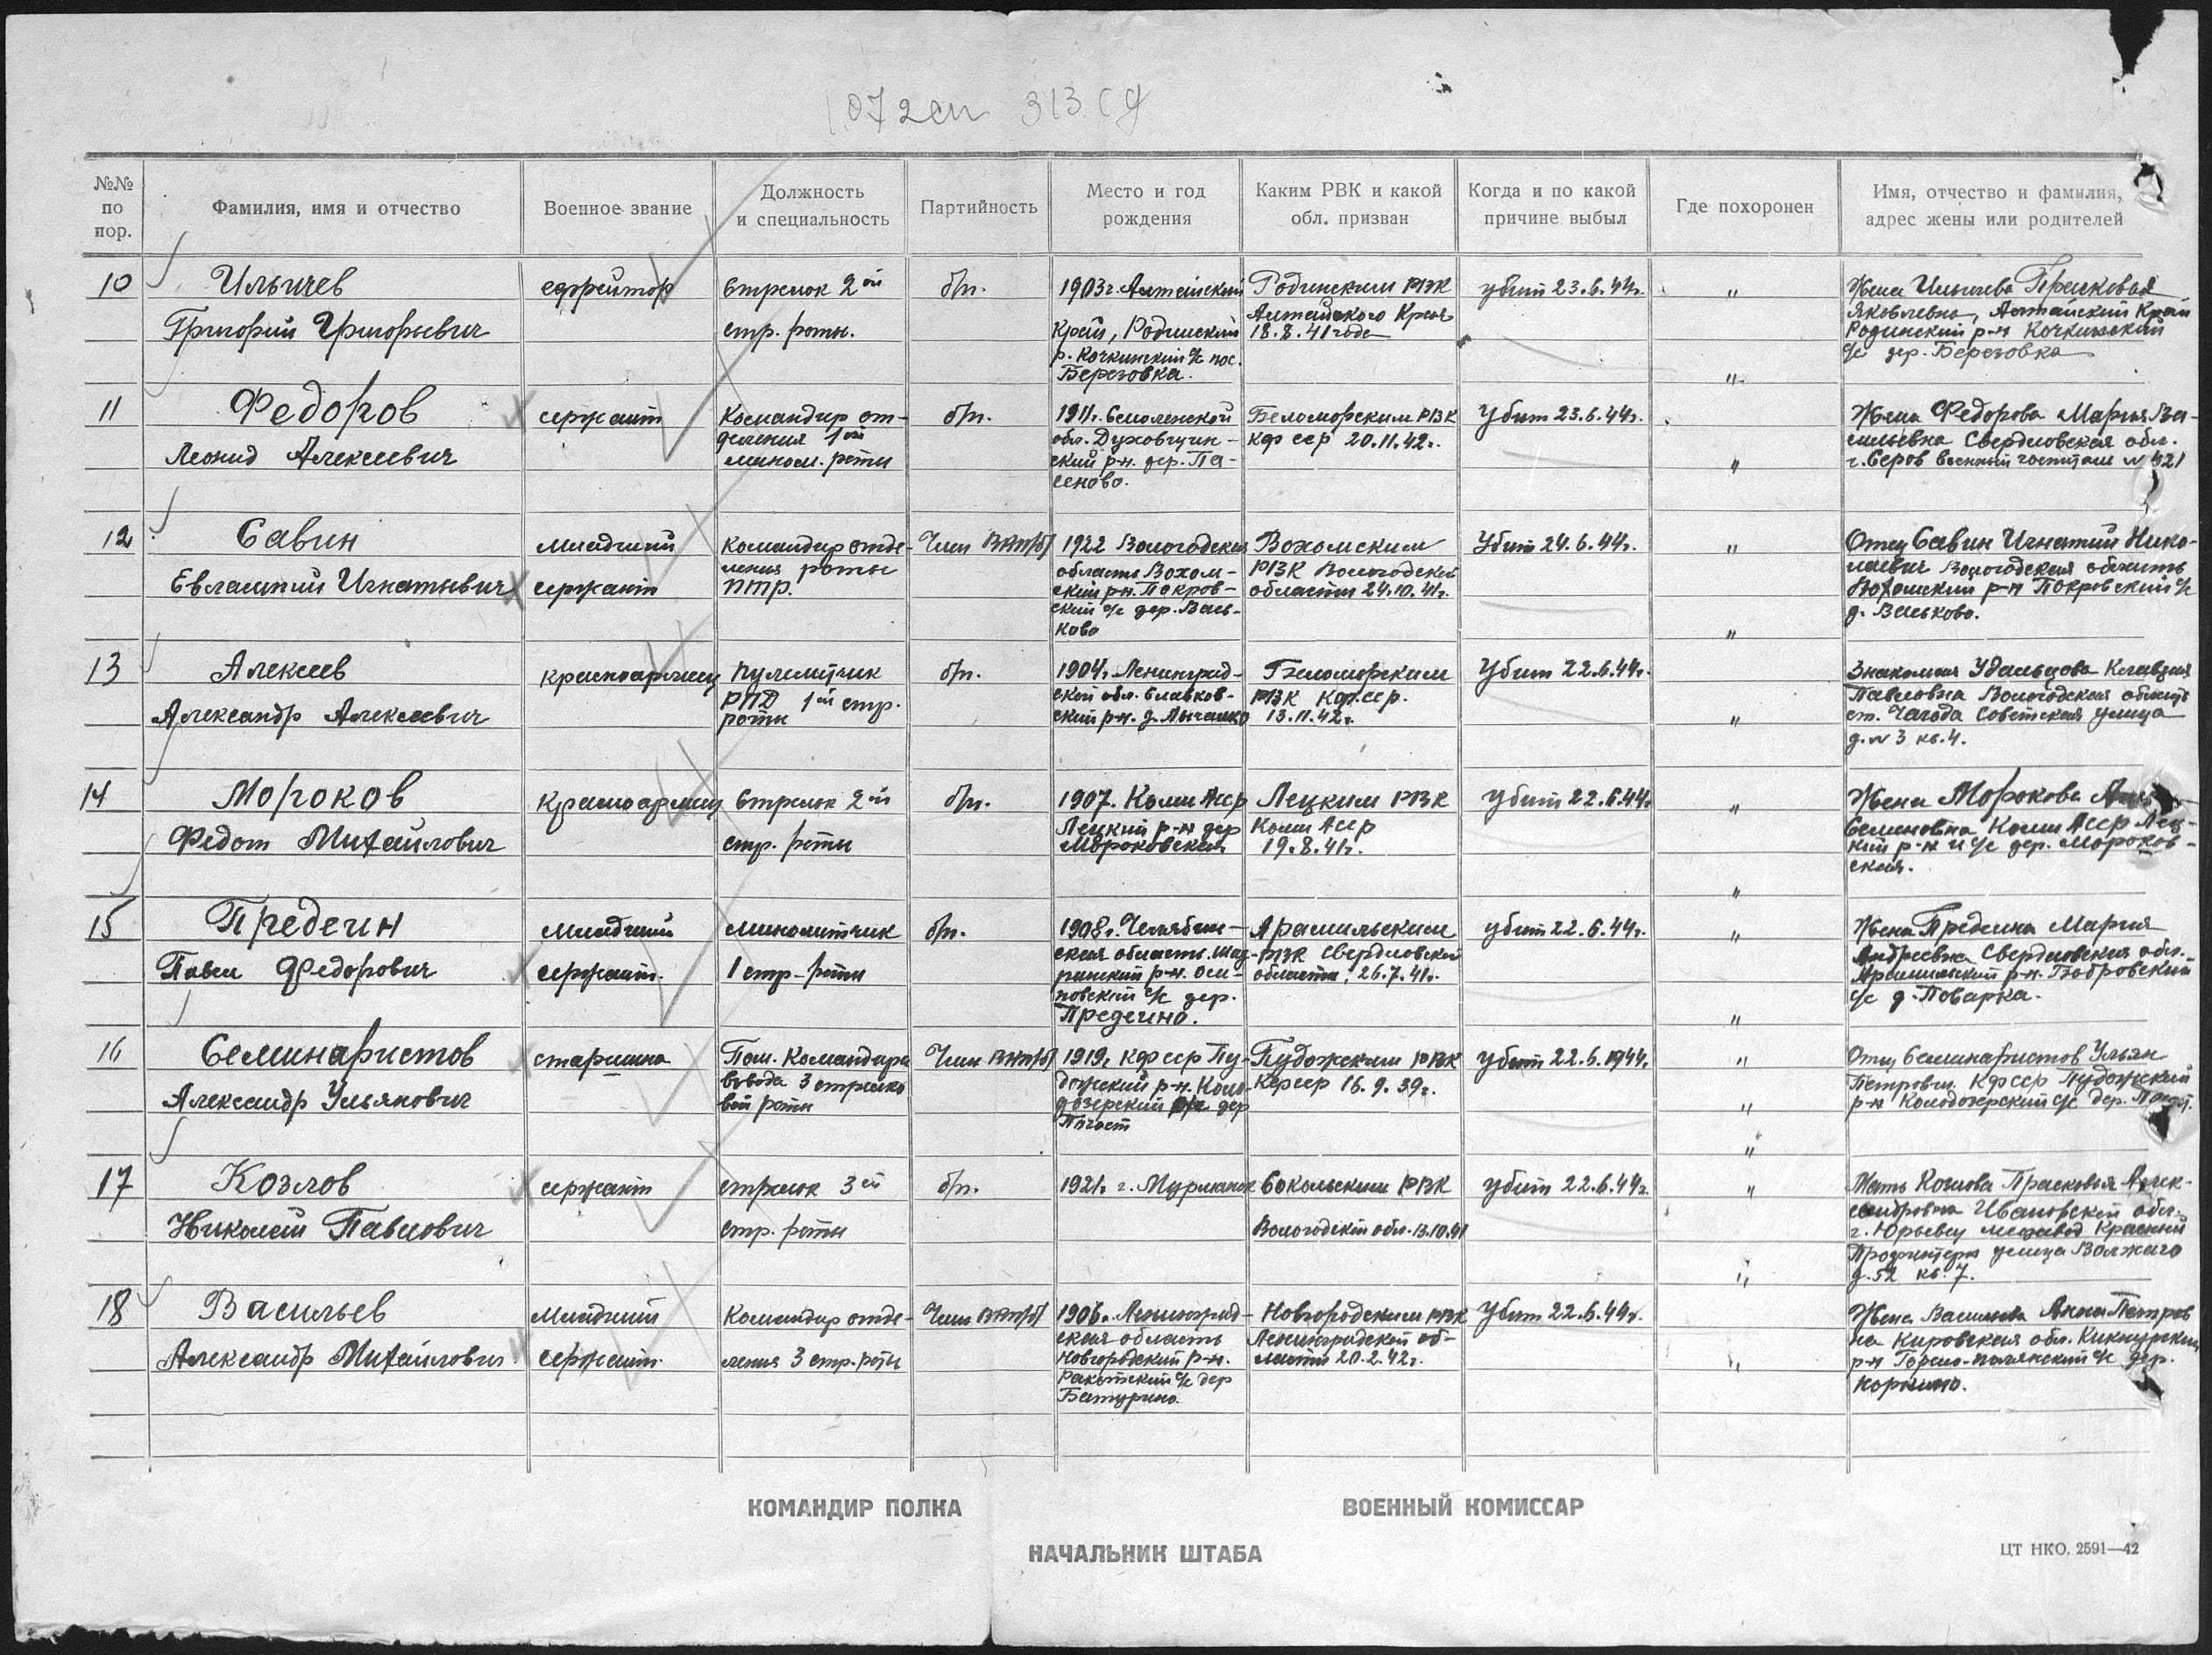 1072сп 313 сд
№№ по пор.
Фамилия, имя и отчество
Военное звание
Должность и специальность
Партийность
Место и год рождения
Каким РВК и какой обл. призван
Когда и по какой причине выбыл
Где похоронен
Имя, отчество и фамилия, адрес жены или родителей
10
Ильичев
Григорий Григорьевич
ефрейтор
стрелок 2ой
стр. роты.
б/п.
1903г. Алтайский
Край, Родинский
р. Кочкинский с/с пос.
Березовка.
Родинским РВК
Алтайского Края
18.8.41 года
убит 23.6.44г.
"
"
Жена Ильичева Прасковья
Яковлевна, Алтайский Край
Родинский р-н Кочкинский
с/с дер. Березовка
11
Федоров
Леонид Алексеевич
сержант
Командир от-
деления 1ой
мином. роты
б/п.
1911г. Смоленской
обл. Духовщин-
ский р-н. дер. Па-
сеново.
Беломорским РВК
КФССР 20.11.42г.
Убит 23.6.44г.
"
Жена Федорова Мария Ва-
сильевна Свердловская обл.
г. Серов военный госпиталь
12
Савин
Евлампий Игнатьевич
младший
сержант
командир отде-
ления роты
ПТР.
Член ВКП/б/
1922 Вологодская
область Вохом-
ский рн. Покров-
ский с/с дер. Вась-
ково
Вохомским
РВК Вологодской
области 24.10.41г.
Убит 24.6.44г.
"
"
Отец Савин Игнатий Нико-
лаевич Вологодская область
Вохомский р-н Покровский с/с
д. Васьково.
13
Алексеев
Александр Алексеевич
красноармеец
пулеметчик
РПД 1ой стр.
роты
б/п.
1904г. Ленинград-
ской обл. Славков-
ский р-н. д.
Беломорским
РВК КФССР.
13.11.42г.
Убит 22.6.44г.
"
Знакомая Удальцова Клавдия
Павловна Вологодская область
ст. Чагода Советская улица
д. № 3 кв. 4.
14
Мороков
Федот Михайлович
красноармеец
Стрелок 2ой
стр. роты
б/п.
1907. Коми АССР
Лецкий р-н дер
Мороковская
Лецким РВК
Коми АССР
19.8.41г.
убит 22.6.44г
"
"
Жена Морокова
Семеновна Коми АССР Лец-
кий р-н с/с дер. Мороков-
ская.
15
Предеин
Павел Федорович
младший
сержант.
минометчик
1 стр-роты
б/п.
1908г. Челябин-
ская область. Шад-
ринский р-н. Оси-
новский с/с дер.
Предеино.
Арамильским
РВК Свердловской
области, 26.7.41г.
убит 22.6.44г.
"
"
Жена Предеина Мария
Андреевна Свердловская обл.
Арамильский р-н. Бобровский
с/с д. Поварка.
16
Семинаристов
Александр Ульянович
старшина
Пом. Командира
взвода 3 стрелко
вой роты
Член ВКП/б/
1919г. КФССР Пу-
дожский р-н. Коло-
дозерский с/с дер
Погост
Пудожским РВК
КФССР 16.9.39г.
убит 22.6.1944.
"
"
"
Отец Семинаристов Ульян
Петрович КФССР Пудожский
р-н Колодозерский с/с дер.
17
Козлов
Николай Павлович
сержант
стрелок 3ей
стр. роты
б/п.
1921г. г. Мурманск
Сокольским РВК
Вологодской обл. 13.10.41
убит 22.6.44г.
"
"
Мать Козлова Прасковья Алек-
сандровна Ивановской обл.
г. Юрьевец Красный
Профинтерн улица
д. 52 кв. 7.
18
Васильев
Александр Михайлович.
Младший
сержант.
Командир отде-
ления 3 стр. роты
Член ВКП/б/
1906г. Ленинград-
ская область
Новгородский р-н.
Ракомский с/с дер
Батурино.
Новгородским РВК
Ленинградской об-
ласти 20.2.42г.
Убит 22.6.44г.
"
Жена Васильева Анна Петров
на Кировская обл. Кикнурский
р-н с/с дер.
Коркино.
КОМАНДИР ПОЛКА
ВОЕННЫЙ КОМИССАР
НАЧАЛЬНИК ШТАБА
ЦТ НКО. 2591—42